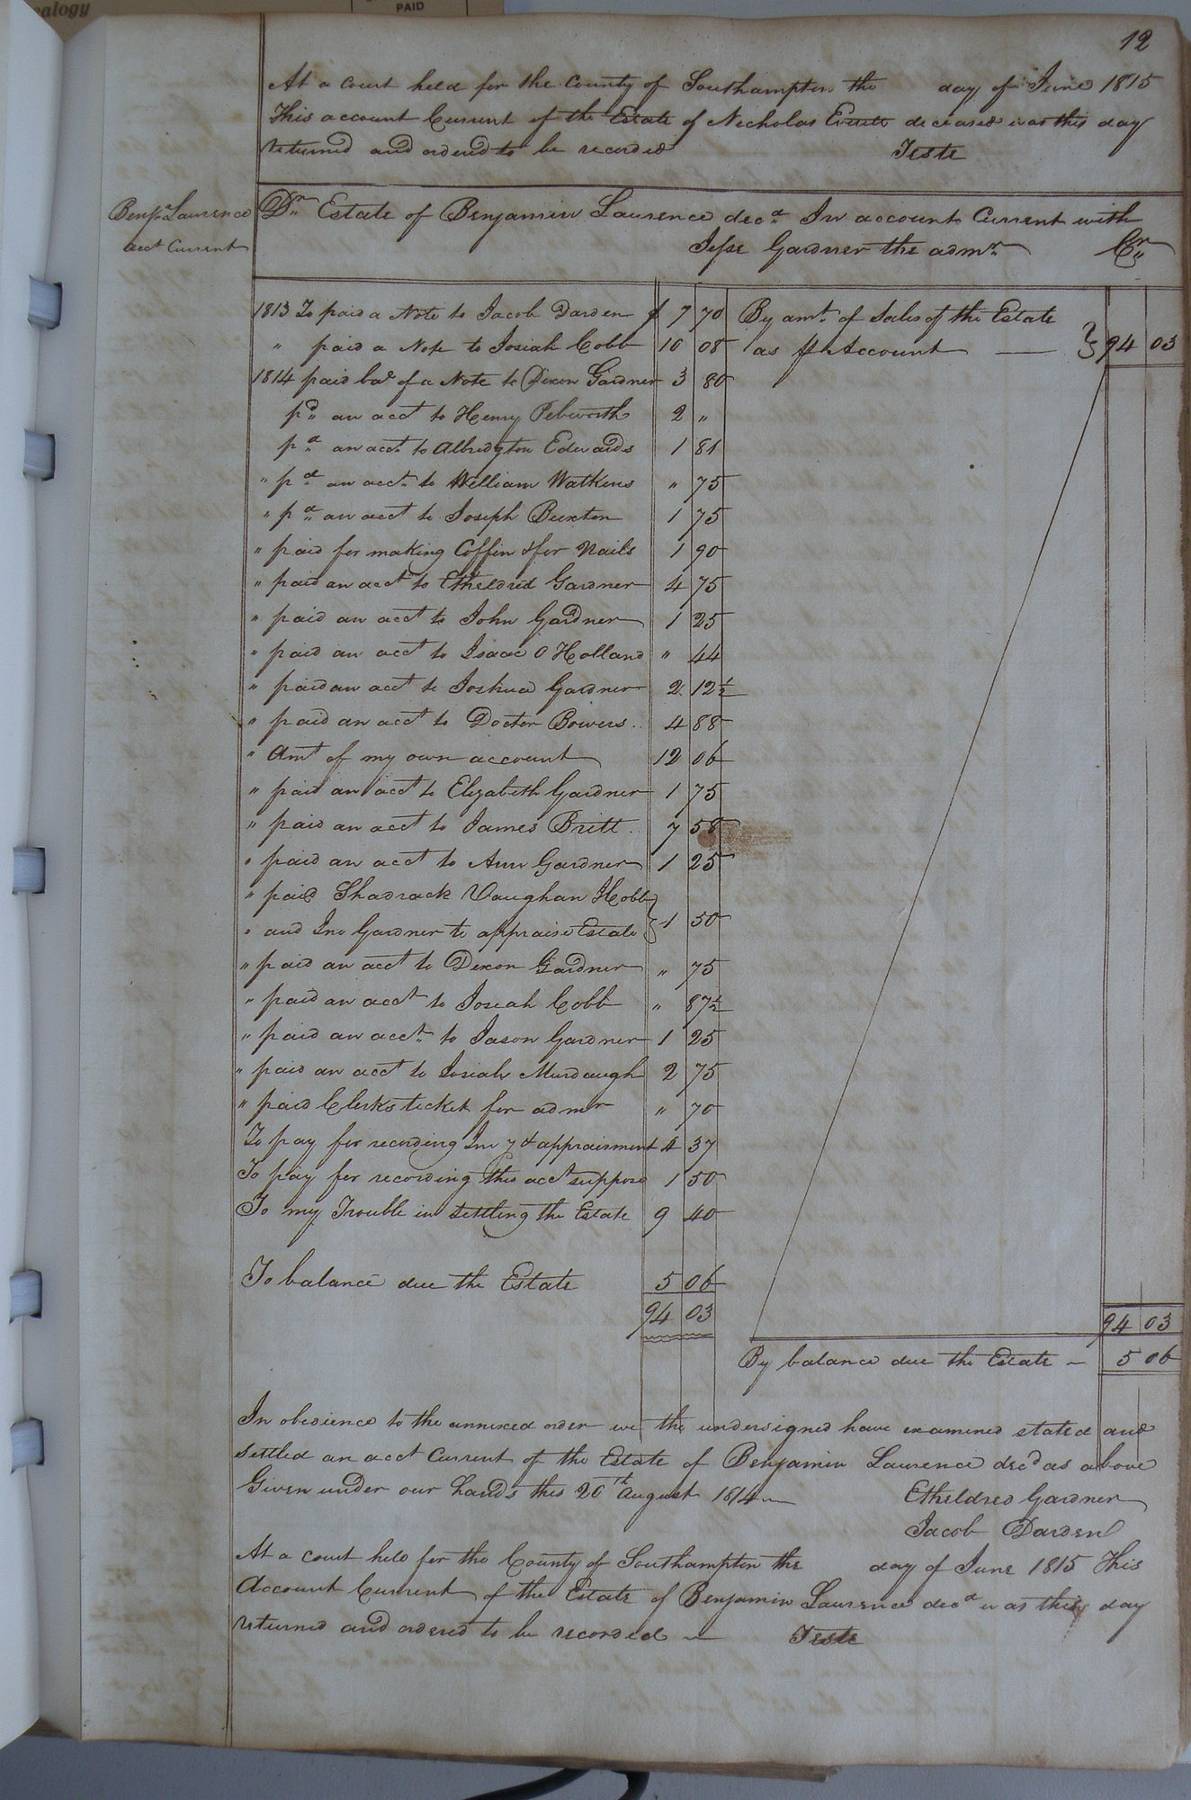 alogy
PAID
12
At a Court held for the County of Southampton the day of June 1815
This account Current of the Estate of Nicholas deceased was this day
returned and ordered to be recorded Teste
Benja. Laurence
acct Current
Dr Estate of Benjamin Laurence decd. In account Current with
Jesse Gardner the admr. Cr
1813 To paid a Note to Jacob Darden $ 7 70
" paid a Note to Josiah Cobb 10 08
1814 paid bal of a Note to Dixon Gardner 3 80
pd. an acct to Henry Pebworth 2 "
pd. an acct. to Albridgton Edwards 1 81
" pd an acct. to William Watkins " 75
" pd. an acct to Joseph Buxton 1 75
" paid for making Coffin & for Nails 1 90
" paid an acct to Etheldred Gardner 4 75
" paid an acct to John Gardner 1 25
" paid an acct to Isaac O Holland " 44
" paid an acct to Joshua Gardner 2 12½
" paid an acct to Doctor Bowers 4 88
" Amt of my own account 12 06
" paid an acct to Elizabeth Gardner 1 75
" paid an acct to James Britt 7 58
" paid an acct to Ann Gardner 1 25
" paid Shadrack Vaughan H Cobb
" and Jno Gardner to appraise Estate } 1 50
" paid an acct to Dixon Gardner " 75
" paid an acct to Josiah Cobb " 87½
" paid an acct. to Jason Gardner 1 25
" paid an acct to Josiah Murdaugh 2 75
" paid Clerks ticket for admr " 70
To pay for recording Invy & appraisment 4 37
To pay for recording this acct suppose 1 50
To my Trouble in settling the Estate 9 40
To balance due the Estate 5 06
94 03
By amt. of Sales of the Estate
as pr Account } 94 03
94 03
By balance due the Estate 5 06
In obedience to the annexed order we the undersigned have examined stated and
settled an acct Current of the Estate of Benjamin Laurence decd as above
Given under our hands this 20th August 1814
Etheldred Gardner
Jacob Darden
At a court held for the County of Southampton the day of June 1815 This
Account Current of the Estate of Benjamin Laurence decd was this day
returned and ordered to be recorded Teste